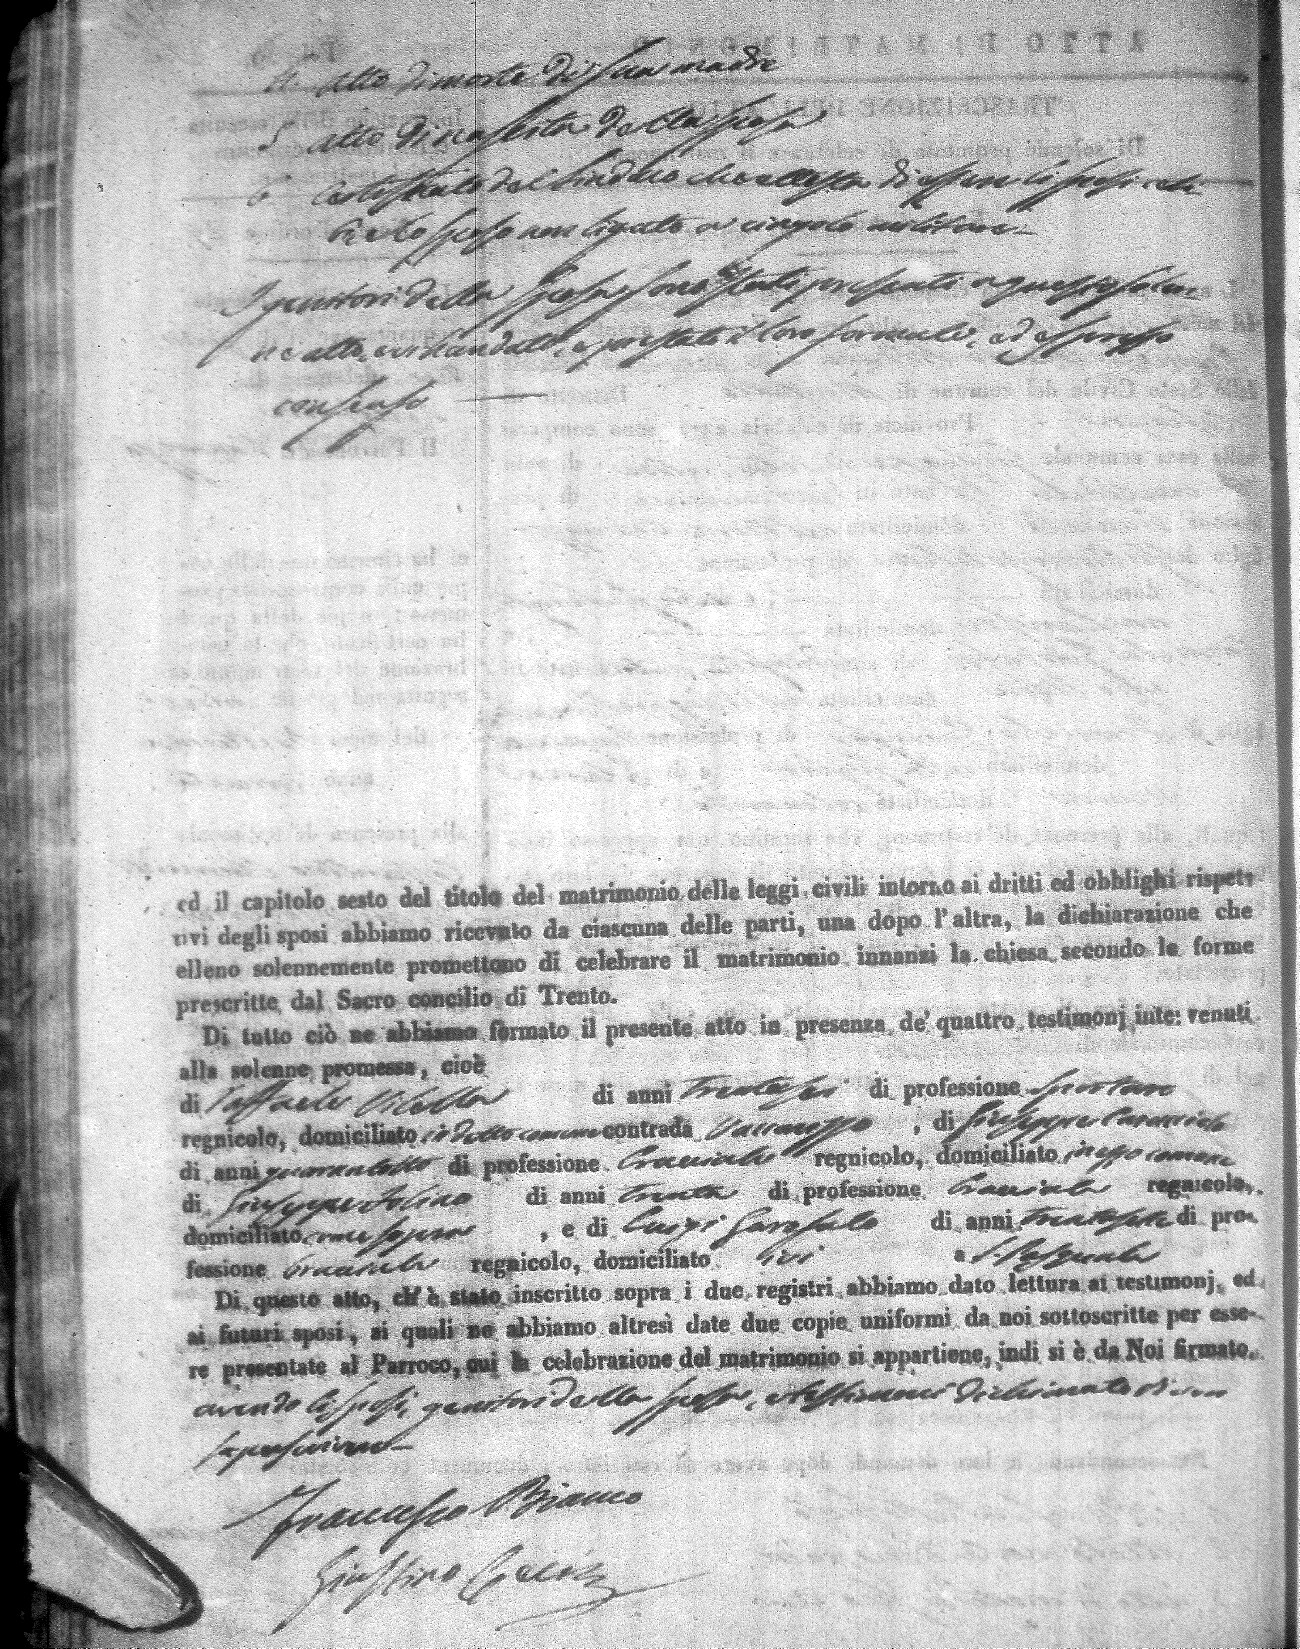 4. Atto di morte di sua madre
5 Atto di nascita della sposa
6 Certificato del Sindaco che attesta di essere li sposi celi-
bi e lo sposo non ligato a cingolo militare
I genitori della sposa sono stati presenti a questo solen-
ne atto, e prestato il loro formale, ed espresso
consenso
ed il capitolo sesto del titolo del matrimonio delle leggi civili intorno ai dritti ed obblighi rispet-
tivi degli sposi abbiamo ricevuto da ciascuna delle parti, una dopo l'altra, la dichiarazione che
elleno solennemente promettono di celebrare il matrimonio innanzi la chiesa secondo le forme
prescritte dal Sacro concilio di Trento.
Di tutto ciò ne abbiamo formato il presente atto in presenza de' quattro testimonj intervenuti
alla solenne promessa, cioè
di Raffaele Vilella di anni trentasei di professione
regnicolo, domiciliato in detto comune contrada , di Giuseppe
di anni quarantotto di professione bracciale regnicolo, domiciliato in esso comune
di Giuseppe di anni trenta di professione bracciale regnicolo,
domiciliato come sopra , e di Luigi Garofalo di anni trentasette di pro-
fessione bracciale regnicolo, domiciliato ivi a S. Pasquale
Di questo atto, ch' è stato inscritto sopra i due registri abbiamo dato lettura ai testimonj, ed
ai futuri sposi, ai quali ne abbiamo altresì date due copie uniformi da noi sottoscritte per esse-
re presentate al Parroco, cui la celebrazione del matrimonio si appartiene, indi si è da Noi firmato,
avendo li sposi, genitori della sposa, e testimoni dichiarato di non
saper scrivere
Francesco Bianco
Giustino